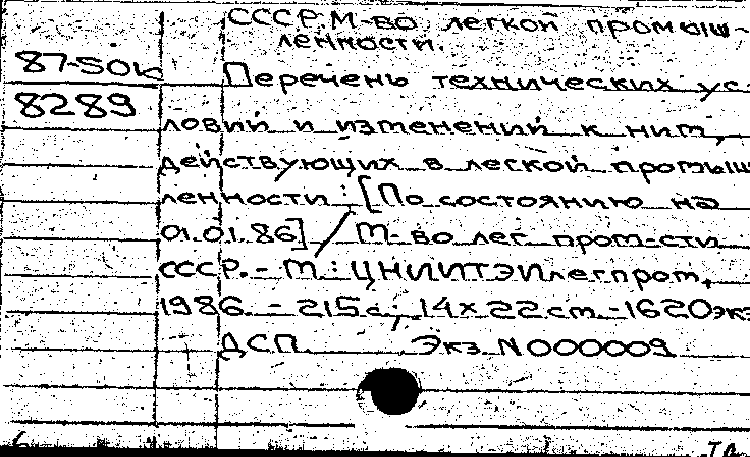 СССР. М-во легкой промыш-
ленности.
87-50к
Перечень технических ус-
8289
ловий и изменений к ним,
действующих в легкой промыш
ленности: [По состоянию на
01.01.86] / М-во лег. пром-сти
СССР. - М.: ЦНИИТЭИлегпром,
1986. - 215с.; 14х22 см. - 1620экз
ДСП. Экз. N000009